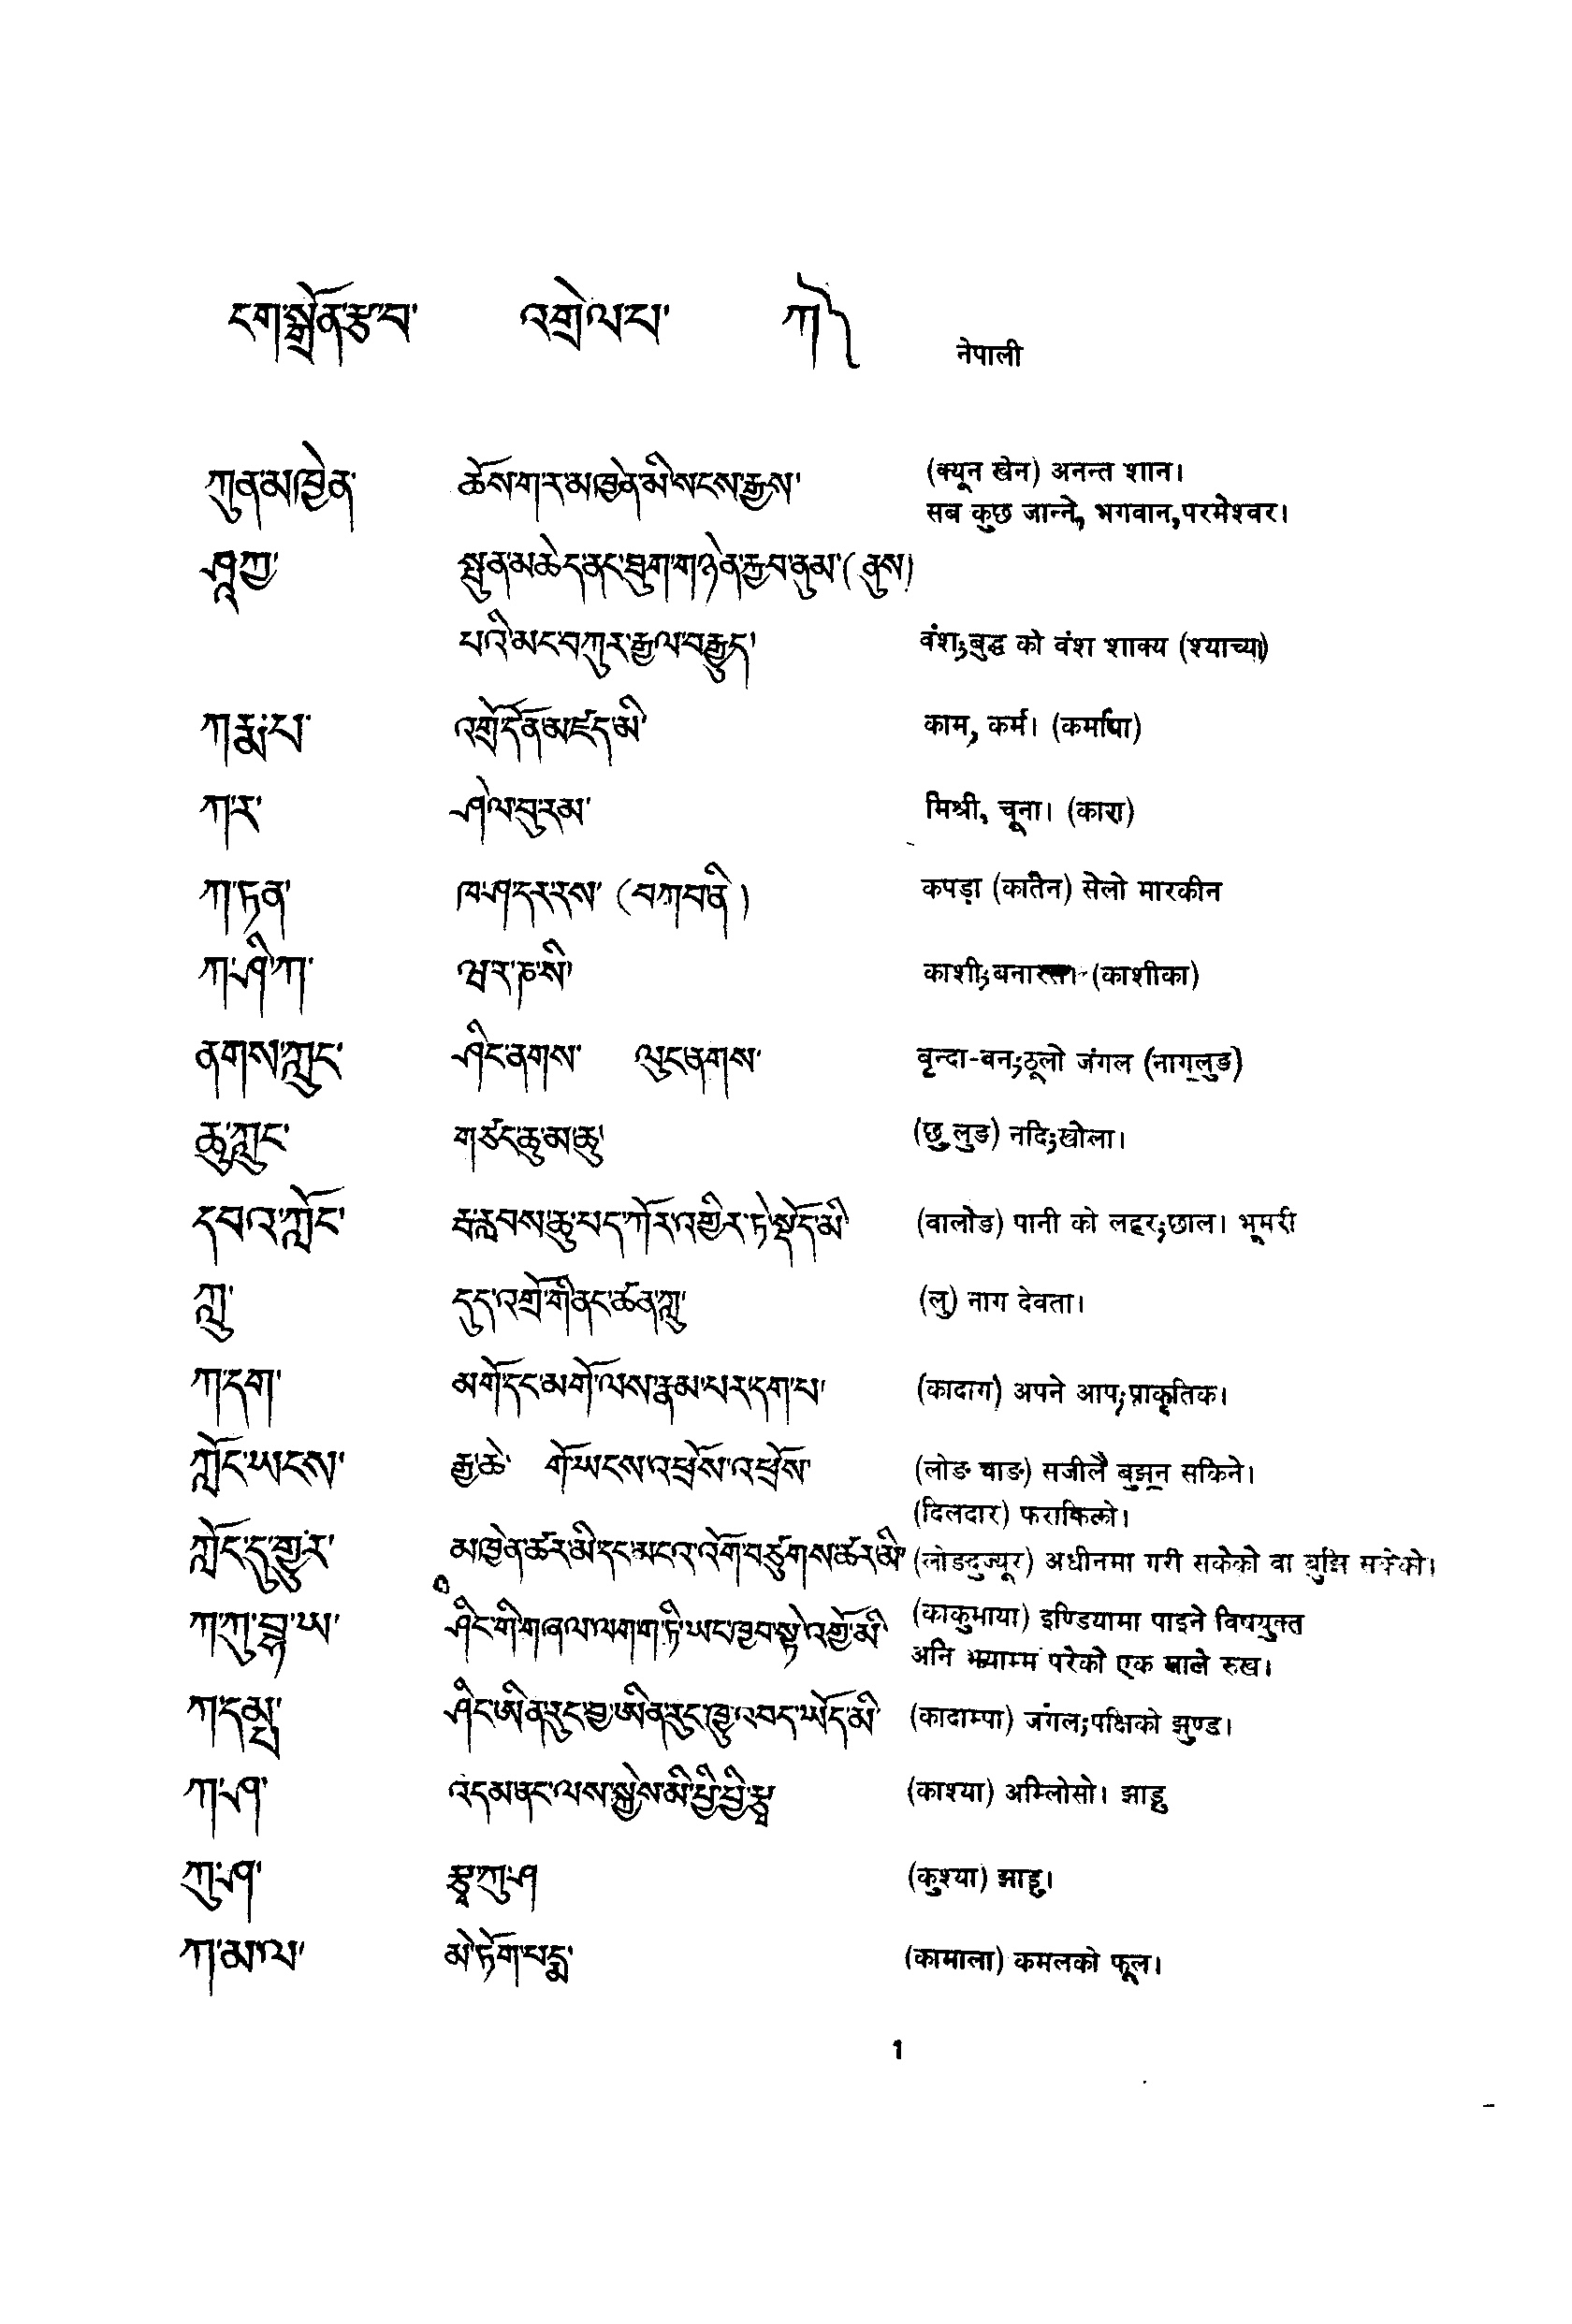 ངག་སྒྲོན་རྩ་བ་ འགྲེལ་པ་ ཀ། नेपाली
ཀུན་མཁྱེན་ ཆོས་ག་ར་མཁྱེན་མི་སངས་རྒྱས་ (क्यून खेन) अनन्त शान।
सब कुछ जान्ने, भगवान,परमेश्वर।
ཤཱཀྱ་ སྤུན་མཆེད་ནང་ཐུག་ག་ཉེན་རྒྱབ་ནུམ་(ནུས)
པའི་མང་བཀུར་རྒྱལ་བརྒྱུད་ वंश;बुद्ध को वंश शाक्य (श्याच्या)
ཀརྨ་པ་ འགྲོ་དོན་མཛད་མི་ काम, कर्म। (कर्मापा)
ཀ་ར་ ཤེལ་བུ་རམ་ मिश्री, चूना। (कारा)
ཀ་ཏན་ ཁ་ཤ་དར་རས་ (བཀབ་ནི) कपड़ा (कातेन) सेलो मारकीन
ཀ་ཤི་ཀ་ ཝ་ར་ཎ་སི་ काशी;बनारस। (काशीका)
ནགས་ཀླུང་ ཤིང་ནགས་ ལུང་ནགས་ बृन्दा-बन;ठूलो जंगल (नागलुङ)
ཆུ་ཀླུང་ གཙང་ཆུ་མ་ཆུ་ (छु लुङ) नदि;खोला।
དབའ་ཀློང་ རྦ་རླབས་ཆུ་པད་ཀོར་འགྱིར་ཏེ་སྡོད་མི་ (वालोङ) पानी को लहर;छाल। भूमरी
ཀླུ་ དུད་འགྲོ་གི་ནང་ཚན་ཀླུ་ (लु) नाग देवता।
ཀ་དག་ མགོ་དང་མགོ་ལས་རྣམ་པར་དག་པ་ (कादाग) अपने आप;प्राकृतिक।
ཀློང་ཡངས་ རྒྱ་ཆེ་ གོ་ཡངས་འཕྲོས་འཕྲོས་ (लोङ याङ) सजीलै बुझन सकिने।
(दिलदार) फराकिलो।
ཀློང་དུ་གྱུར་ མཁྱེན་ཚར་མི་དང་མངའ་འགོ་བཙུགས་ཚར་མི་ (लोङदुज्यूर) अधीनमा गरी सकेको वा बुझि सकेको।
ཀ་ཀུ་བྷ་ཡ་ (काकुमाया) इण्डियामा पाइने विषयुक्त
अनि झ्याम्म परेको एक माले रुख।
ཀ་དམྤ་ ཤིང་ཨིན་རུང་བྱ་ཨིན་རུང་ཁྱུ་འབད་ཡོད་མི་ (कादाम्पा) जंगल;पक्षिको झुण्ड।
ཀ་ཤ་ འདམ་ནང་ལས་སྐྱེས་མི་ (काश्या) अम्लिोसो। झाडु
ཀུ་ཤ་ རྩྭ་ཀུ་ཤ (कुश्या) झाडु।
ཀ་མ་ལ་ མེ་ཏོག་པདྨ་ (कामाला) कमलको फूल।
1